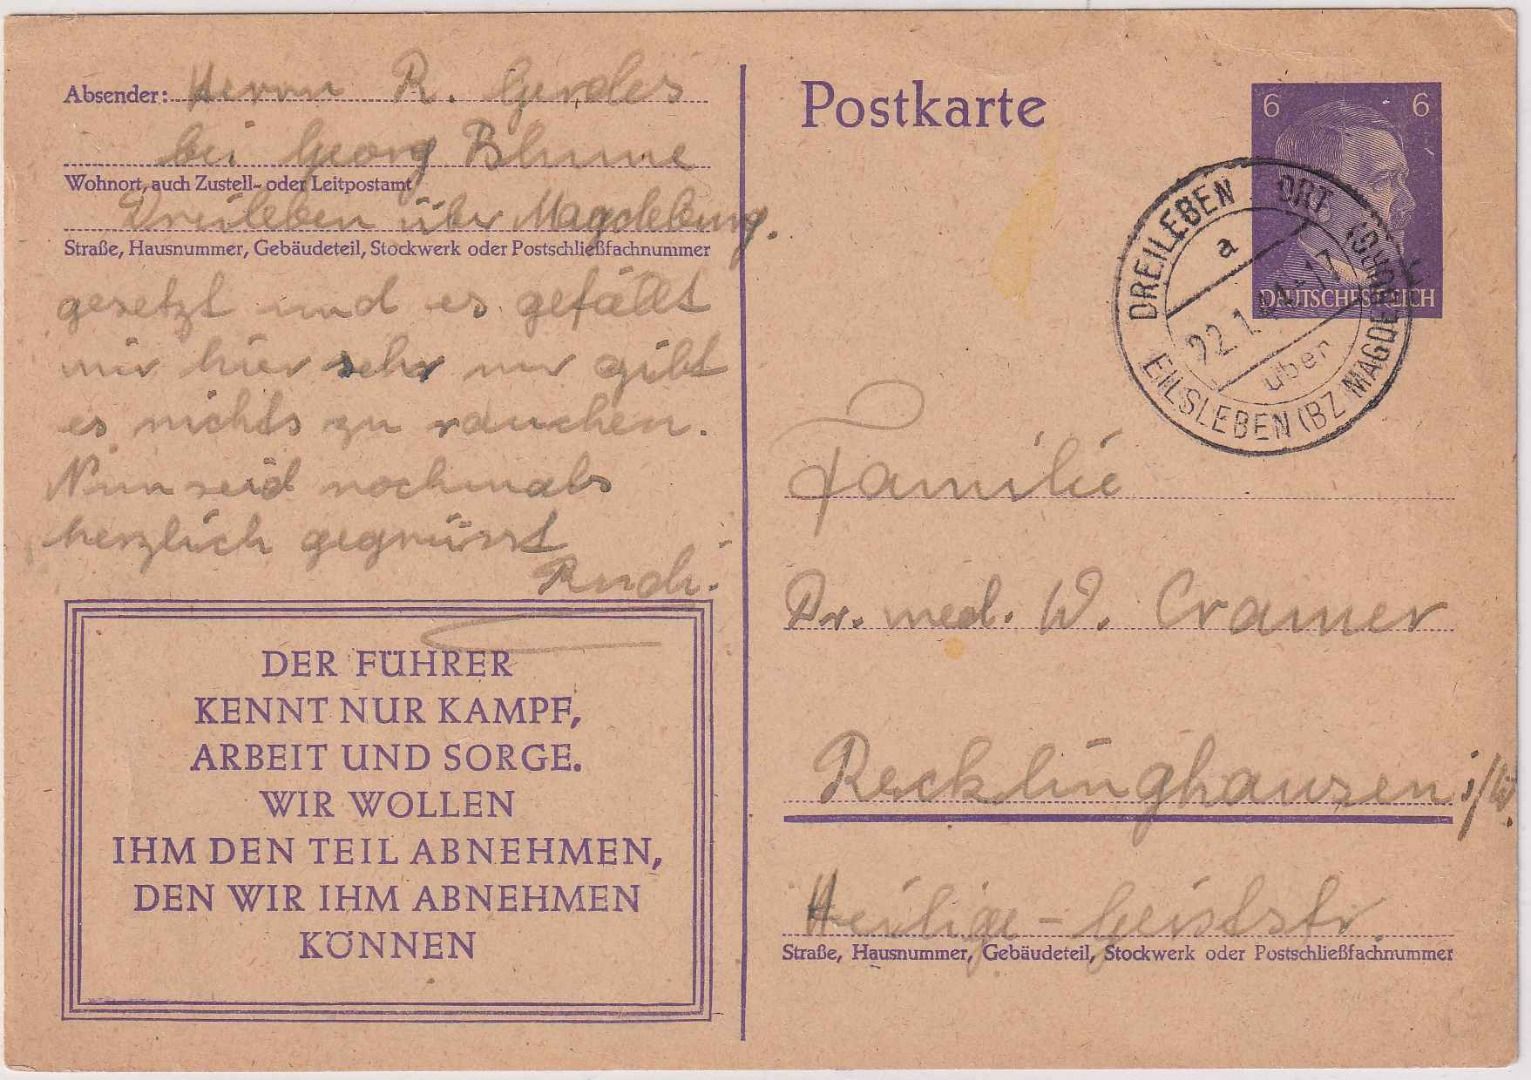 Absender: Herrn R. Gerdes
bei Georg Blume
Wohnort, auch Zustell- oder Leitpostamt
Dreileben über Magdeburg.
Straße, Hausnummer, Gebäudeteil, Stockwerk oder Postschließfachnummer
gesetzt und es gefällt
mir hier sehr nur gibt
es nichts zu rauchen.
Nun seid nochmals
herzlich gegrüsst
Rudi.
DER FÜHRER
KENNT NUR KAMPF,
ARBEIT UND SORGE.
WIR WOLLEN
IHM DEN TEIL ABNEHMEN,
DEN WIR IHM ABNEHMEN
KÖNNEN
Postkarte
6 6
DEUTSCHES REICH
DREILEBEN ORT
a
22.1.44-17
über
EILSLEBEN (BZ MAGDEBURG)
Familie
Dr. med. W. Cramer
Recklinghausen i/W.
Heilige-Geiststr.
Straße, Hausnummer, Gebäudeteil, Stockwerk oder Postschließfachnummer